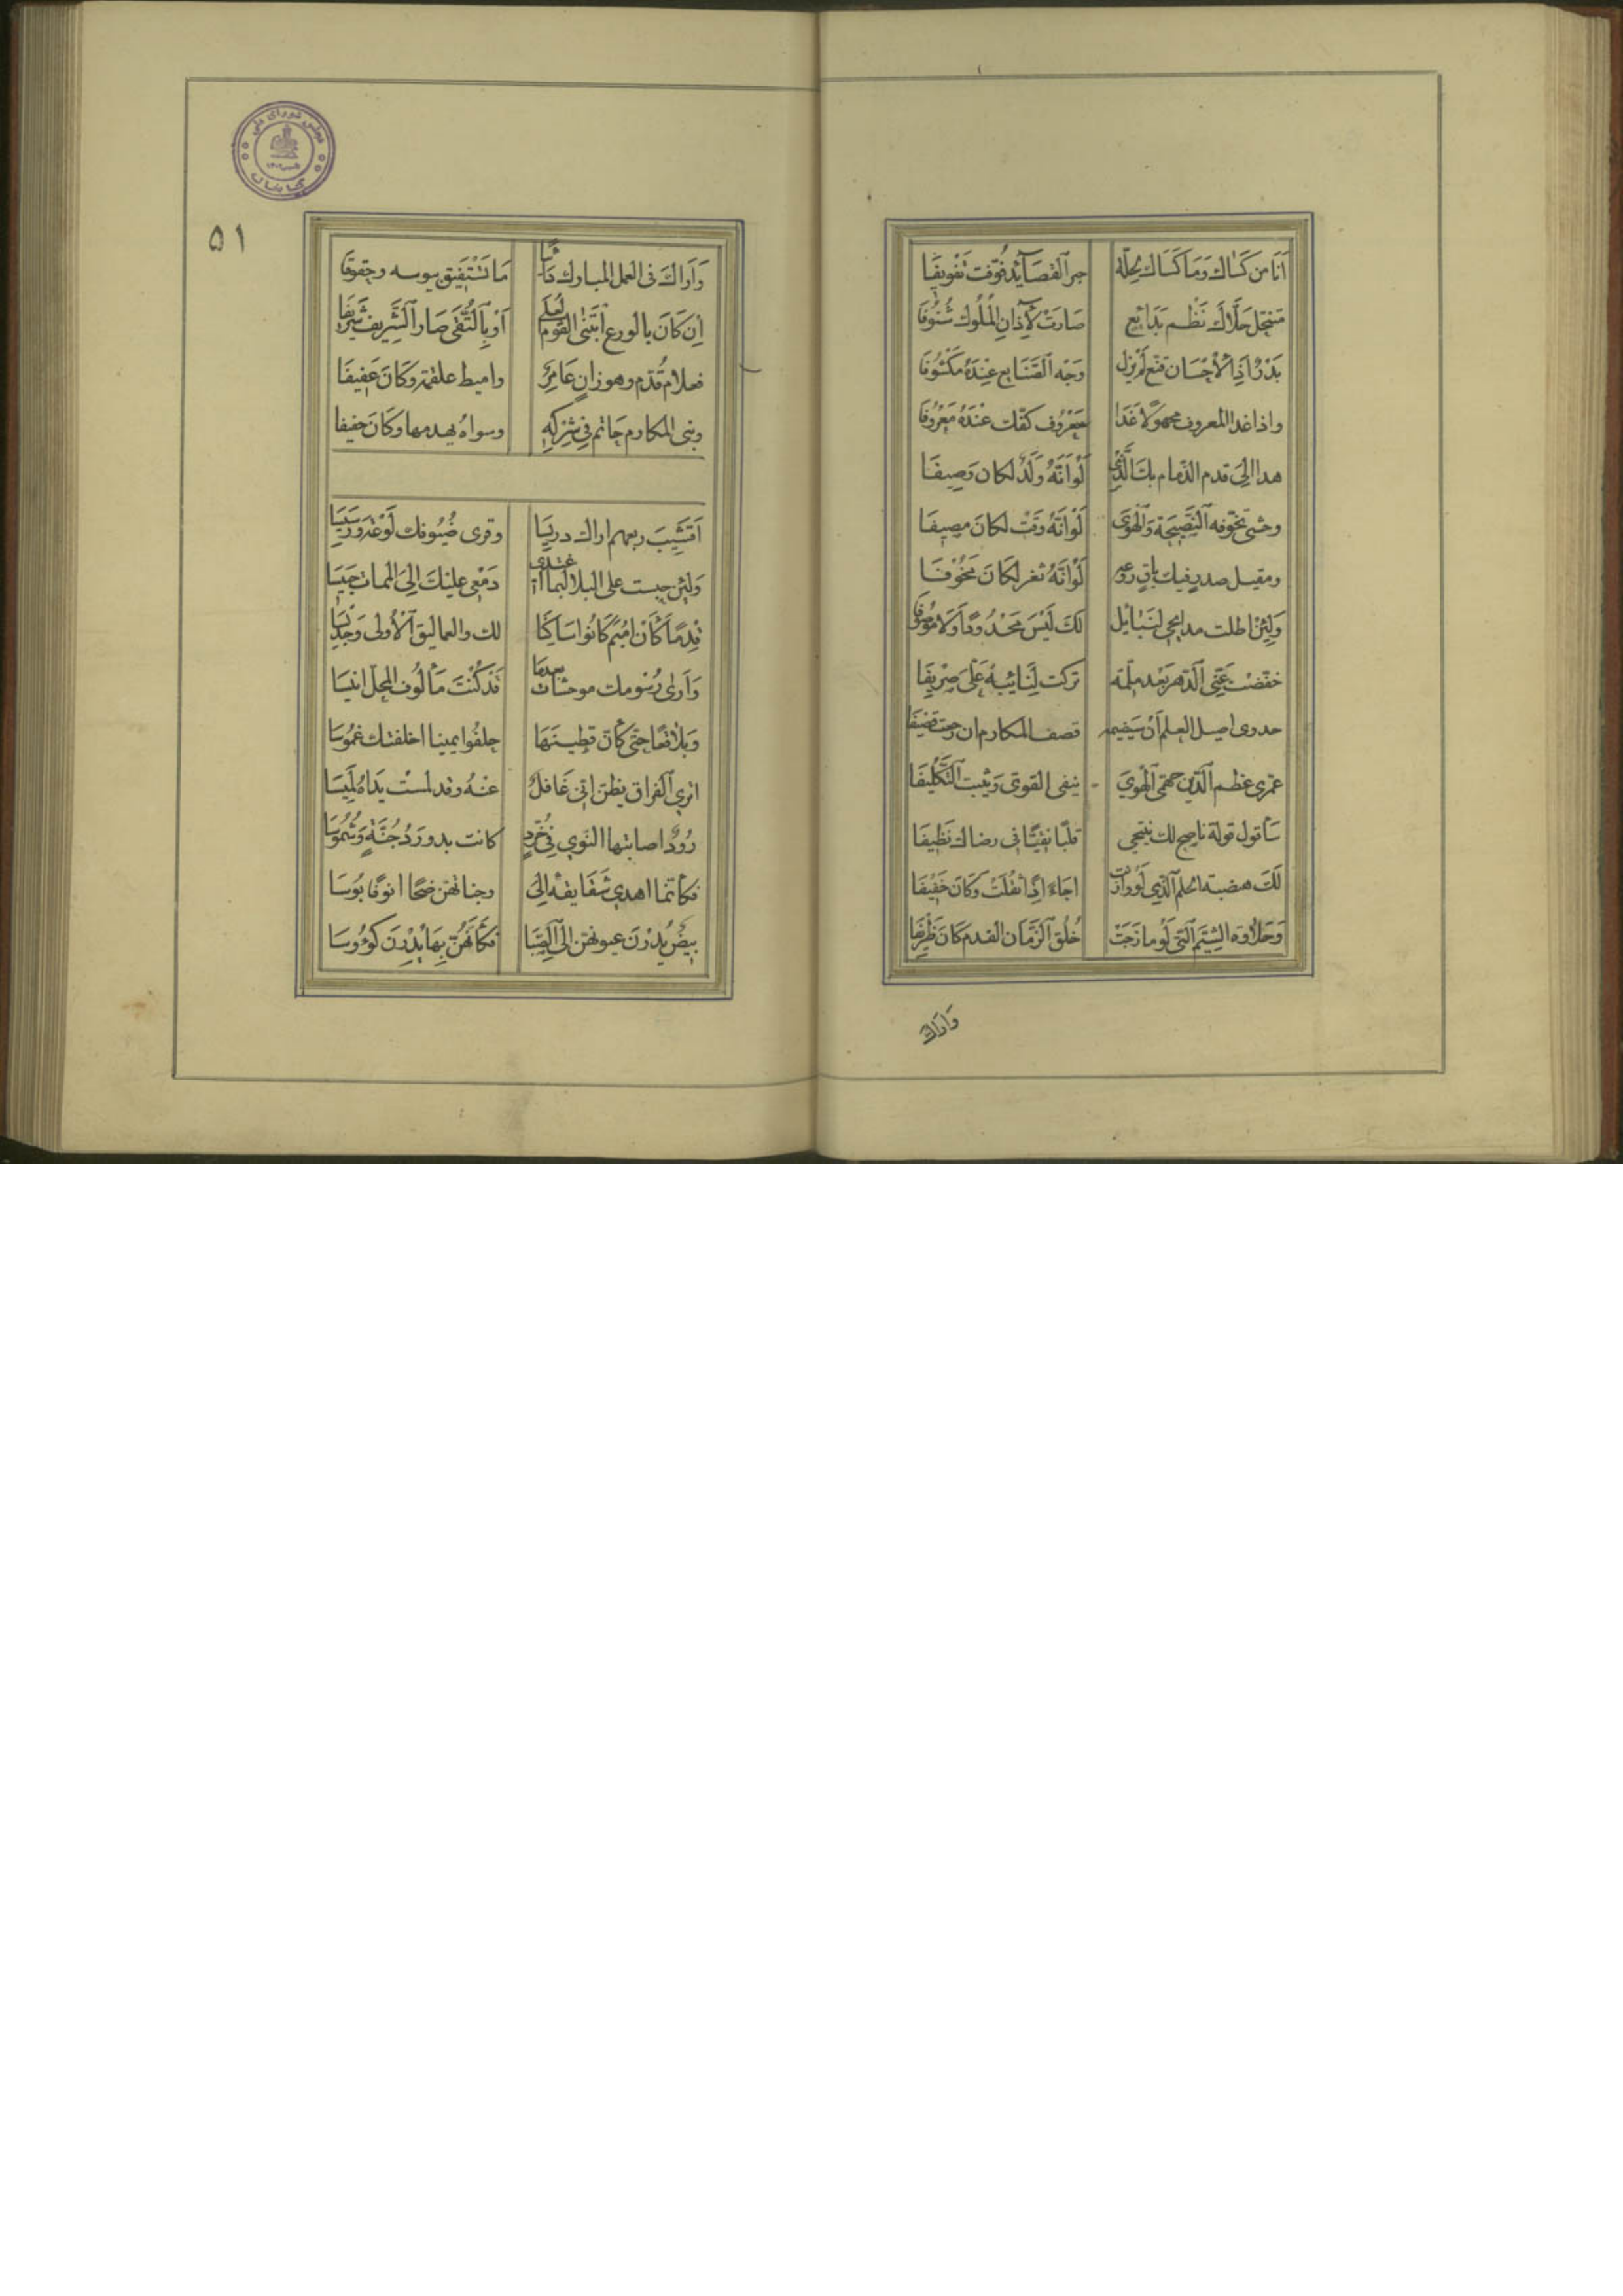 اَنَا مَن كَسَاكَ وَمَا كَسَاكَ بِحِلّة حبر القصَآئِد فُوِّفت تَفْويفَا
متنخل حَلَّاكَ نَظْم بَدَائِع صَارَتْ لِآذانِ الْمُلُوك شُنُوفَا
وَجْه الصَّنَايع عِنْدَهُ مَكْشُوفَا
واذا غدا المعروف مجهولًا غَدَا مَعْرُوف كفّك عنْدَهُ مَعْرُوفَا
هذا اِلىَ قدم الذمام بِكَ الَّذِي لَوْ اَنَّهُ وَلَدٌ لكان وَصِيفَا
وحشى تحرّقه النَّصِيحَة وَالْهَوَى لَوْ اَنَّهُ وَقْتٌ لكانَ مصِيفَا
ومقيل صدر فيك باقٍ روعه لَوْ اَنَّهُ ثغر لكَانَ مَخُوْفَا
وَلئِنْ اطلت مدايحى لنَبَائِل لَكَ لَيْسَ مَحْدُودًا وَلَا مَوْصُوفَا
خفّضت عَنِّى الدَّهر بَعْد ملمّة تركت لِنَائِبهُ عَلَىَ صرِيفَا
جدوى اصيل العلم اَنْ سَيَضِيمه قصف المكارم ان رجعت قضيفَا
عمرى عظم الدِّين جهمىّ الْهَوَى ينفى القوى وَيثبت التَّكْلِيفَا
سَأقول قولة ناصح لك ينتحى قلبًا نقيًّا فى رضاك نَظِيفَا
لَكَ هضبة الحلم الَّذِي لَوْ وَازَنَتْ اجاءَ اِذًا ثقُلَتْ وَكَانَ خَفِيْفَا
وَحَلَاوَة الشِيَم الَّتِى لَوْ مازَجَتْ خُلُقَ الزَّمَان الفدم كَانَ ظَرِيْفَا
وَاراكَ
٥١
وَاَرَاكَ فى العمل المبارك دَائِبًا مَا تَسْتَفِيق يبوسه وجفوفَا
اِن كَانَ بالورع ابْتَنَى القوم لُعلَى اَوْ بِالتُّقَى صَارَ الشَّرِيف شَرِيْفَا
فعلام قُدِّم وهو زانٍ عَامِرٌ واميط علقمة وكَانَ عَفِيفَا
وبنى المكارم حَاتم فِى شِرْكِهِ وسواهُ يهدمها وكَانَ حنيفا
اَقَشِيبَ ربعهم اراك دريسَا وقرى ضُيُوفك لَوْعَةً وَرَسِيْسَا
وَلئِن حبست على البلا لَبما اغتدى دَمْعِى عليْكَ اِلىَ الممات حَبِيْسَا
لك والعماليق الْأُولى وَجَدِيْسَا
وَاَرىَ رُسُومك موحشات بعدمَا قَدْ كُنْتَ مَألُوف المحلّ انيْسَا
وَبلاقعًا حتى كَأنَّ قطينهَا حلفُوا يمينا اخلفتك غمُوسَا
اترى الفراق يظن اَنِّى غَافل عنْهُ وقد لمستْ يَدَاهُ لَمِيْسَا
رُوُدٌ اصابتها النوى فِى خُرَّدٍ كانت بدور دُجُنَّةٍ وَشُمُوسَا
بِيْضٌ يُدِرْنَ عيونهنّ الى الصِّبَا فكَأَنَّهُنَّ بِهَا يُدِرْنَ كؤوسَا